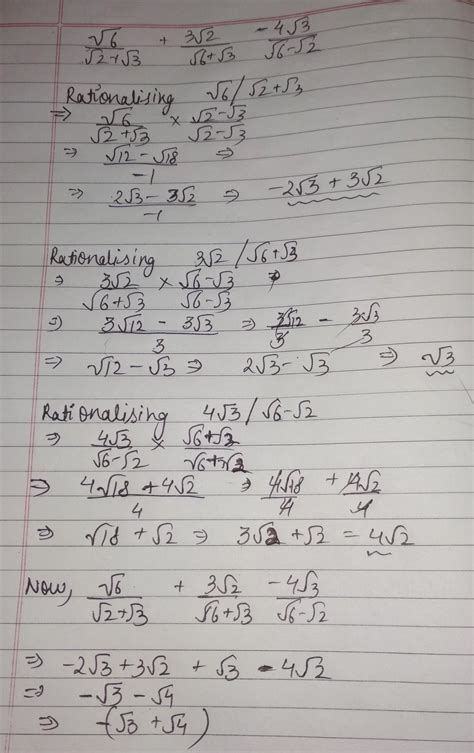 √6/(√2+√3) + 3√2/(√6+√3) - 4√3/(√6-√2)
Rationalising √6/√2+√3
⇒ √6/(√2+√3) × (√2-√3)/(√2-√3)
⇒ (√12 - √18)/-1 ⇒
⇒ (2√3 - 3√2)/-1 ⇒ -2√3 + 3√2
Rationalising 3√2/√6+√3
⇒ 3√2/(√6+√3) × (√6-√3)/(√6-√3) ⇒
⇒ (3√12 - 3√3)/3 ⇒ 3√12/3 - 3√3/3
⇒ √12 - √3 ⇒ 2√3 - √3 ⇒ √3
Rationalising 4√3/√6-√2
⇒ 4√3/(√6-√2) × (√6+√2)/(√6+√2)
⇒ (4√18 + 4√2)/4 ⇒ 4√18/4 + 4√2/4
⇒ √18 + √2 ⇒ 3√2 + √2 = 4√2
Now, √6/(√2+√3) + 3√2/(√6+√3) - 4√3/(√6-√2)
⇒ -2√3 + 3√2 + √3 - 4√2
⇒ -√3 - √4
⇒ -(√3 + √4)